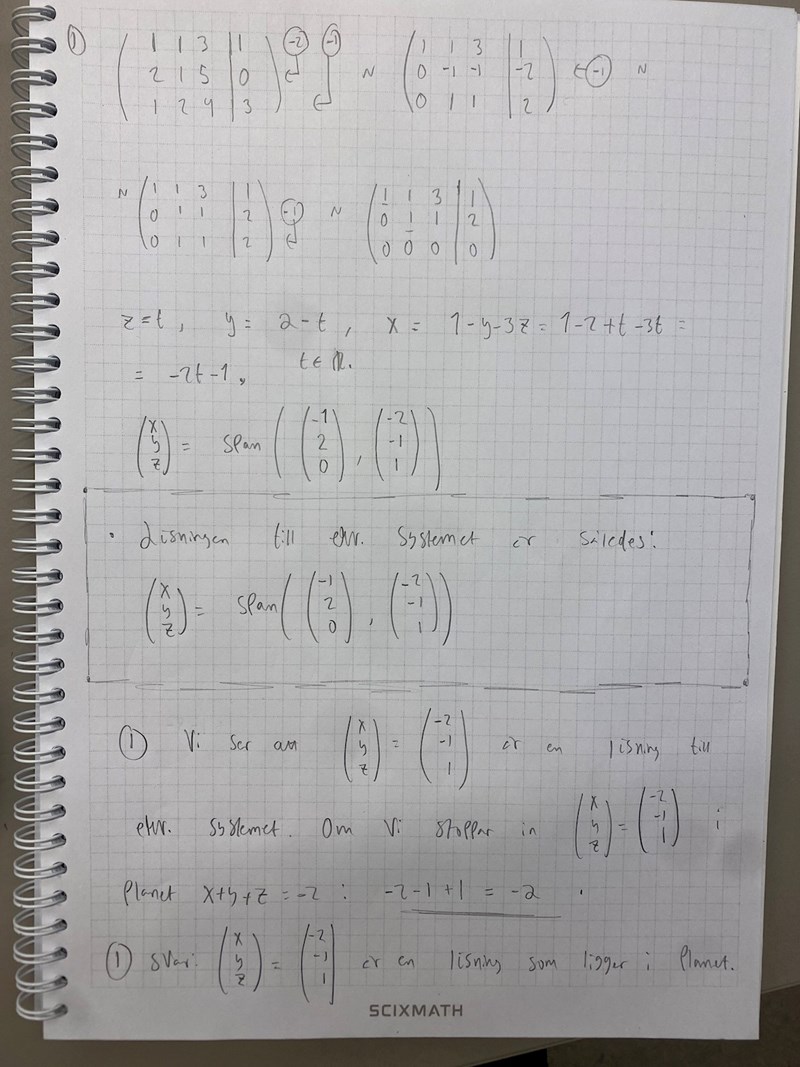 ① ( 1 1 3 | 1 ; 2 1 5 | 0 ; 1 2 4 | 3 ) (-2) (-1) ~ ( 1 1 3 | 1 ; 0 -1 -1 | -2 ; 0 1 1 | 2 ) ← (-1) ~
~ ( 1 1 3 | 1 ; 0 1 1 | 2 ; 0 1 1 | 2 ) (-1) ~ ( 1 1 3 | 1 ; 0 1 1 | 2 ; 0 0 0 | 0 )
z=t, y= 2-t, x= 1-y-3z = 1-2+t-3t =
= -2t-1, t∈ℝ.
(x y z) = span( (-1 2 0), (-2 -1 1) )
• Lösningen till ekv. systemet är således:
(x y z) = span( (-1 2 0), (-2 -1 1) )
① Vi ser att (x y z) = (-2 -1 1) är en lösning till
ekv. systemet. Om vi stoppar in (x y z) = (-2 -1 1) i
planet x+y+z = -2 : -2-1+1 = -2 .
① svar: (x y z) = (-2 -1 1) är en lösning som ligger i planet.
SCIXMATH